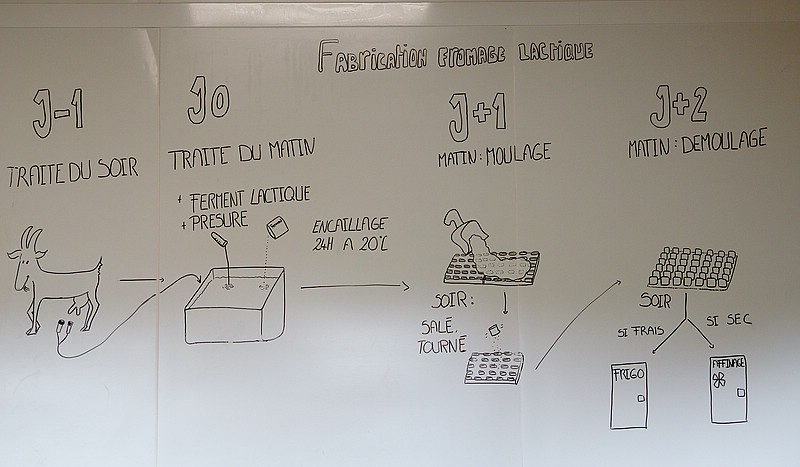 FABRICATION FROMAGE LACTIQUE
J-1
TRAITE DU SOIR
J0
TRAITE DU MATIN
+ FERMENT LACTIQUE
+ PRESURE
ENCAILLAGE
24H A 20°C
J+1
MATIN : MOULAGE
SOIR :
SALÉ,
TOURNÉ
J+2
MATIN : DEMOULAGE
SOIR
SI FRAIS
SI SEC
FRIGO
AFFINAGE